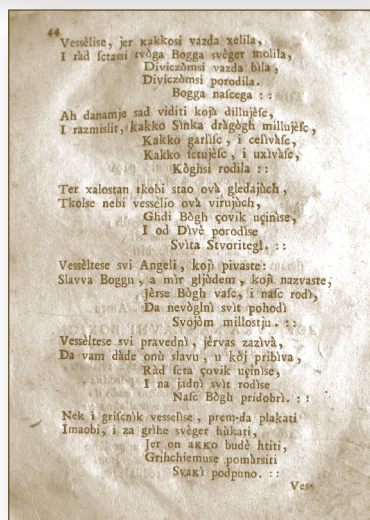 44
Vessèlise, jer kakkosi vazda xelila,
I ràd sctassi tvòga Bogga svèger molila,
Diviczòmsi vazda bìla,
Diviczòmsi porodila.
Bogga nascega : :
Ah danamje sad viditi kojà dillujèsc,
I razmislit, kakko Sìnka dràgògh millujèsc,
Kakko garlìsc, i celivàsc,
Kakko sctujèsc, i uxivàsc,
Kòghsi rodila ::
Ter xalostan tkobi stao ovà gledajùch,
Tkolse nebi vessèlio ovà virujùch,
Ghdi Bògh çovik uçinìse,
I od Dìvè porodise
Svìta Stvoritegl. ::
Vessèltese svi Angeli, kojì pivaste:
Slavva Boggu, a mìr gljùdem, kojì nazvaste,
Jèrse Bògh vasc, i nasc rodì,
Da nevòglnì svìt pohodì
Svojòm millostju. ::
Vessèltese svi pravednì, jèrvas zazìvà,
Da vam dàde onù slavu, u kòj pribìva,
Ràd scta çovik uçinìse,
I na jadnì svìt rodìse
Nasc Bògh pridobrì. ::
Nek i griscnìk vesselìse, prem-da plakati
Imaobi, i za grìhe svèger hùkati,
Jer on akko budè htiti,
Grihchiemuse pomàrsiti
Svakì podpuno. ::
Ves-